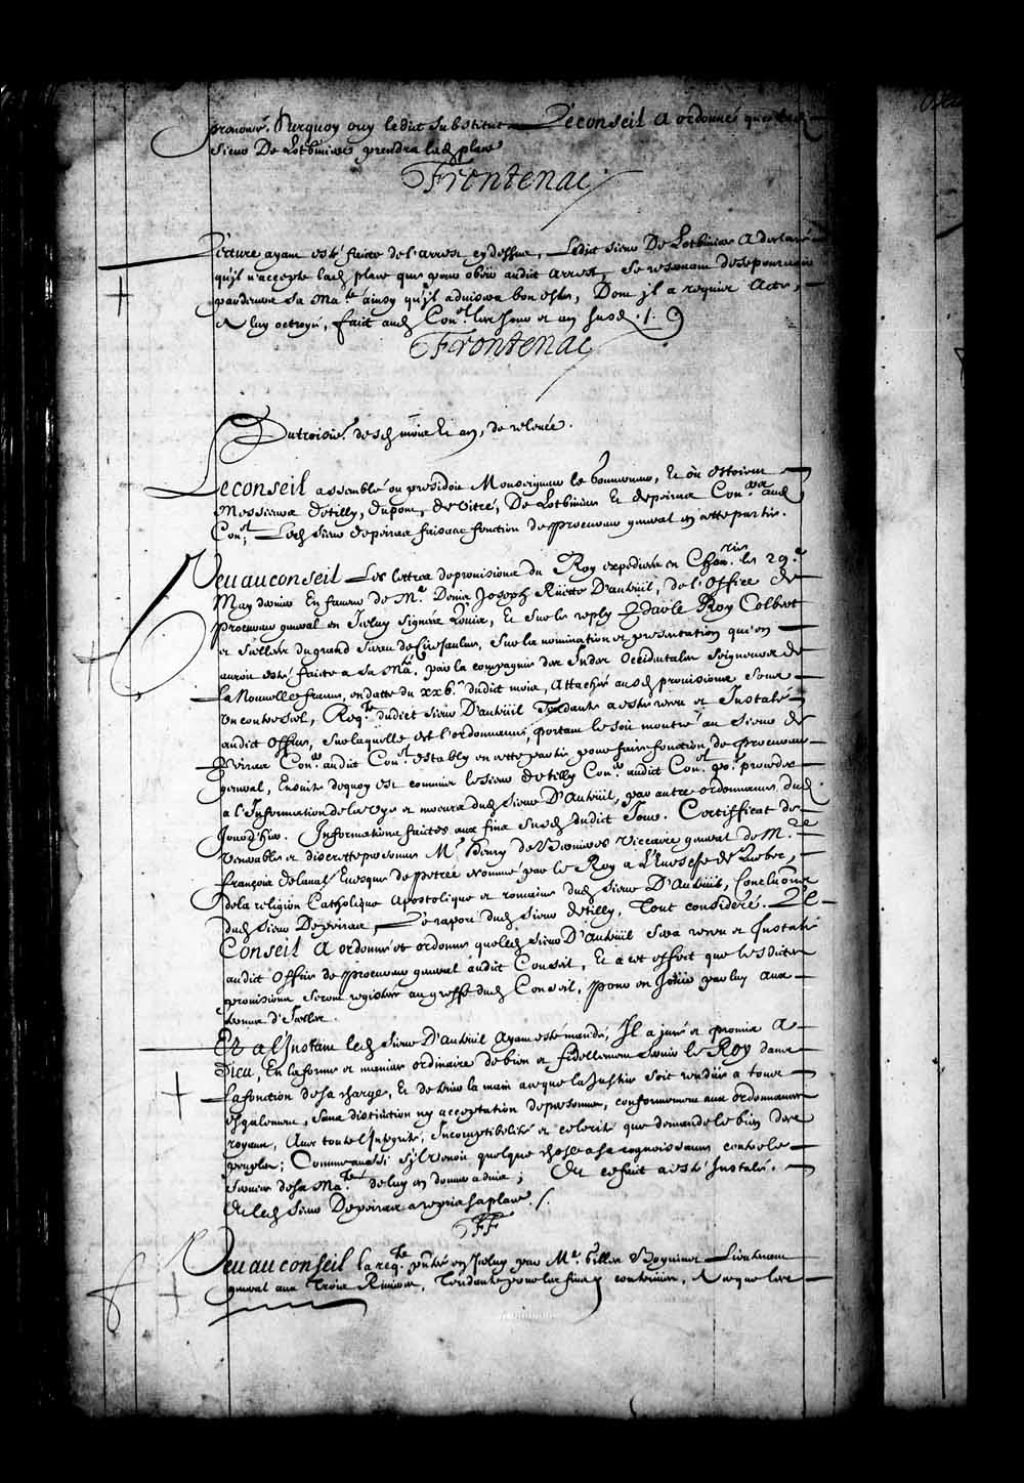 prononcé. Surquoy ouy ledict substitut Le conseil a ordonné que led.
Sieur De Lotbiniere prendra lad. place
Frontenac
Lecture ayant esté faitte de l'arrest cy dessus, Ledict sieur De Lotbiniere A declaré
qu'il n'accepte lad. place que pour obeir audit arrest, Se reservant de se pourvoir
pardevant Sa Ma.té ainsy qu'il advisera bon estre, Dont il a requis Acte,
A luy octroyé, faict aud. Con.el les jour et an susd. ./.
Frontenac
Du troisie. desd. mois et an, de relevée.
Le conseil assemblé ou presidoit Monseigneur le Gouverneur, Et où estoient
Messieurs de Tilly, dupont, de Vitré, De Lotbiniere Et depeiras Con.ers aud.
Con.el Led. Sieur depeiras faisant fonction de procureur general en cette partie.
Veu au conseil Les lettres de provisions du Roy expediées en Chan.rie le 29.e
May dernier En faveur de M.e Denis Joseph Rüette D'auteüil, de l'Office de
procureur general en Iceluy Signées Louis, Et Sur le reply Par le Roy Colbert
et Scellées du grand Sceau de Cire jaulne, Sur la nomination et presentation qui en
auroit esté faitte a Sa Ma.té par la compagnie des Indes Occidentales Seigneurs de
La Nouvelle france, en datte du xxb.e dudict mois, Attachée ausd. provisions Sous
Un contrescel, Req.te dudict Sieur D'auteüil Tendante a estre receu et Installé
audict Office, Sur laquelle est l'ordonnance, portant le soit montré au Sieur de
Peiras Con.er audict Con.el estably en cette partie pour faire fonction de procureur
general, Ensuite dequoy est commis le sieur de Tilly Con.er audict Con.el po.r proceder
a l'Information de la vye et mœurs dud. Sieur D'Auteüil, par autre ordonnance dud.
Jour d'hier. Informations faittes aux fins susd. dudict Jour. Certifficat de
Venerable et discrette personne M.e Henry de Bernieres Viccaire general de M.re
François de Laval Evesque de petrée nommé par le Roy a L'Evesché de Quebec,
de la religion Catholique Apostolique et romaine dud. Sieur D'Auteüil, Conclusions
dud. Sieur Depeiras, Le raport dud. Sieur de Tilly, Tout consideré. Le
Conseil A ordonné et ordonne que led. Sieur D'Auteüil Sera receu et Installé
audict Office de procureur general audict Conseil, Et a cet effect que lesdictes
provisions Seront registrées au greffe dud. Conseil, pour en Joüir par luy aux
termes d'Icelles.
Et a l'Instant led. Sieur D'Auteüil Ayant esté mandé, Il a juré et promis A
Dieu, En la forme et maniere ordinaire de bien et fidellement Servir le Roy dans
La fonction de sa charge, Et de tenir la main a ce que la Justice soit renduë a tous
Esgalement, Sans distinction ny acceptation de personnes, conformement aux ordonnances
royaux, Avec toute l'Integrité, Incorruptibilité et celerité que demande le bien des
peuples; Comme aussi s'il venoit quelque chose a sa cognoissance contre le
Service de Sa Ma.té de luy en donner advis; Et ce fait a esté Installé.
Et led. Sieur Depeiras a repris sa place ./.
FF
Veu au conseil la req.te pn.tée en Iceluy par M.e Gilles Boyvinet Lieutenant
general aux Trois Rivieres, Tendante pour les fins y contenües, A ce que les